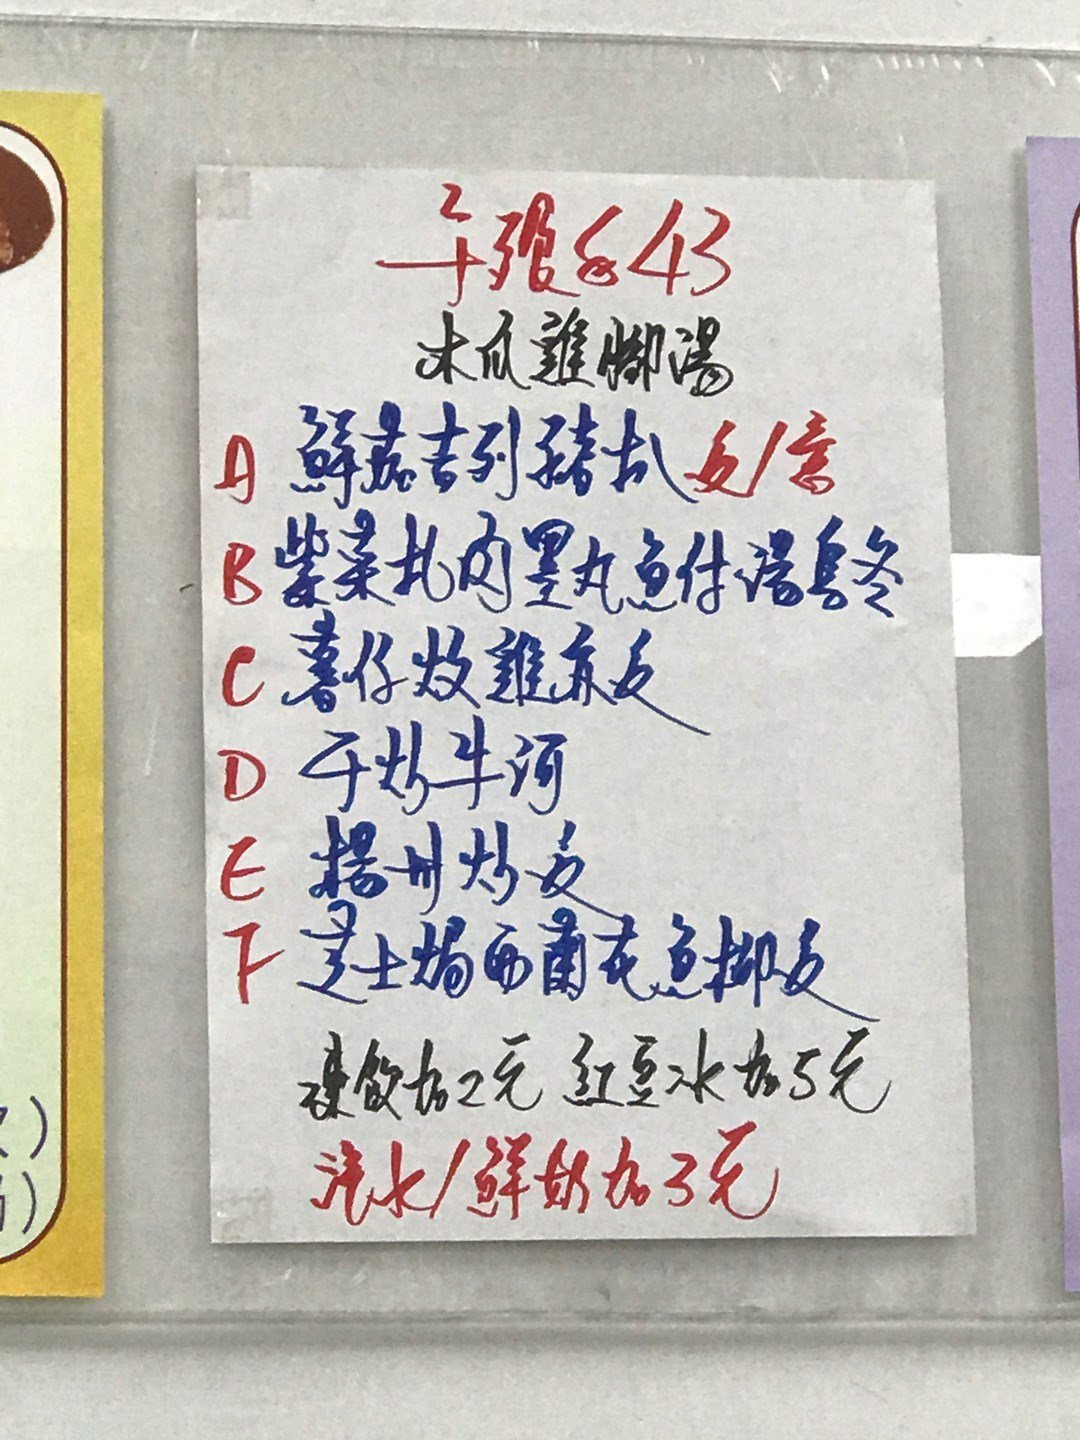 午飱$43
木瓜雞腳湯
A 鮮茄吉列豬扒反/意
B 紫菜扎肉墨丸魚什湯烏冬
C 薯仔炆雞亦反
D 干炒牛河
E 揚州炒反
F 芝士焗西蘭花魚柳反
凍飲加2元 紅豆冰加5元
汽水/鮮奶加3元